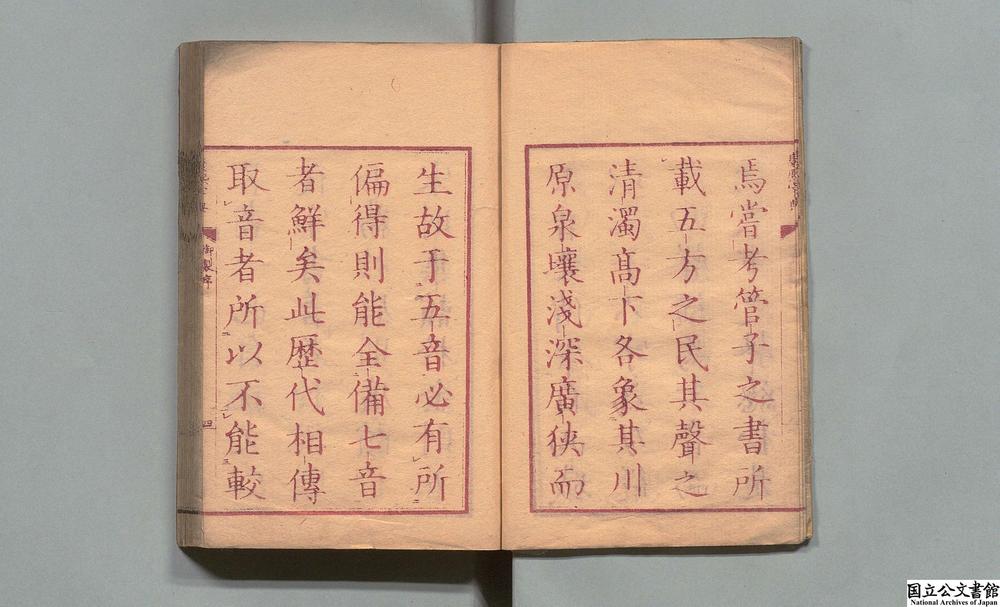 焉嘗考管子之書所
載五方之民其聲之
清濁高下各象其川
原泉壤淺深廣狹而
生故于五音必有所
偏得則能全備七音
者鮮矣此歴代相傳
取音者所以不能較
御製序
四
国立公文書館
National Archives of Japan